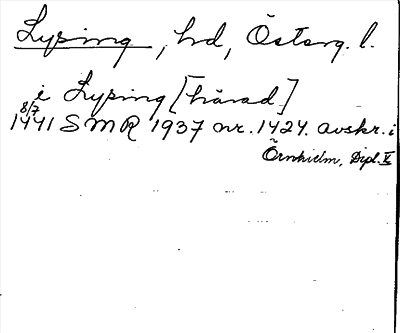 Lysing, hd, Österg. l.
i Lysing [härad]
8/7
1441 SMR 1937 nr. 1424. avskr. i
Örnhielm, Dipl. V